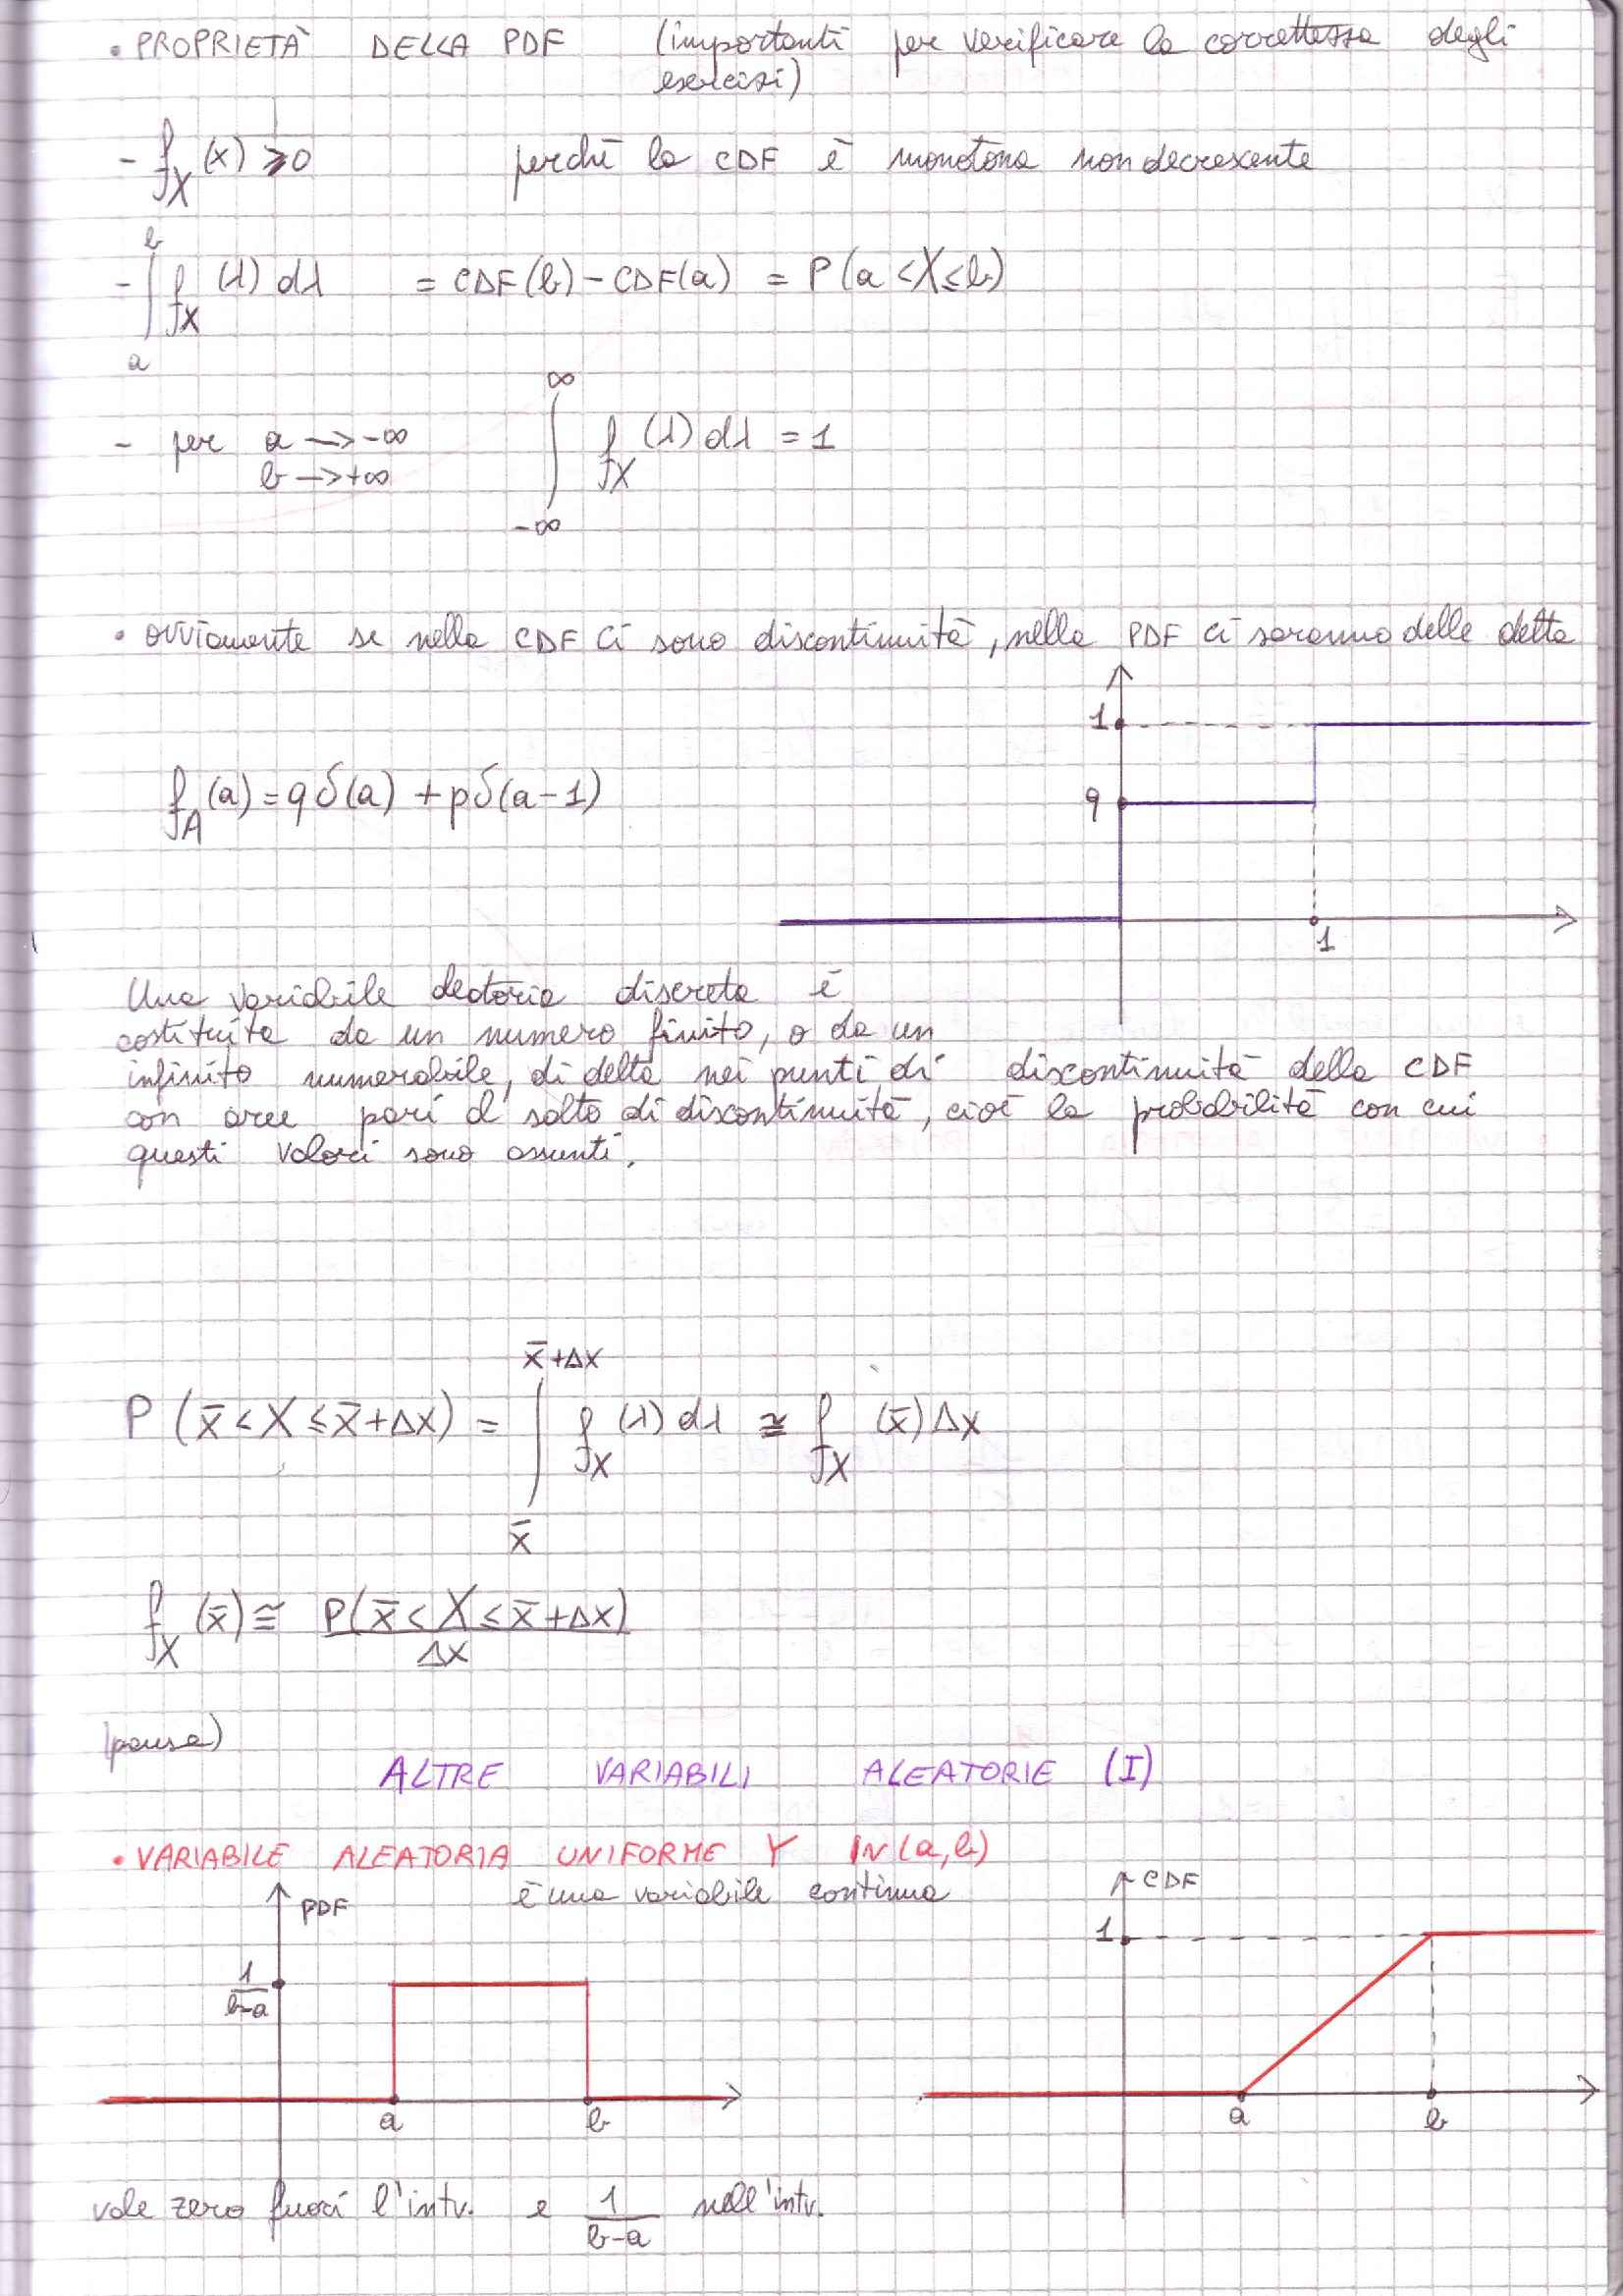 • PROPRIETÀ DELLA PDF (importanti per verificare la correttezza degli
esercizi)
- f_X(x) ⩾ 0 perché la CDF è monotona non decrescente
- ∫_a^b f_X(λ) dλ = CDF(b) - CDF(a) = P(a < X ≤ b)
- per a → -∞ ∫_{-∞}^{∞} f_X(λ) dλ = 1
b → +∞
• ovviamente se nella CDF ci sono discontinuità, nella PDF ci saranno delle delta
1
f_A(a) = qδ(a) + pδ(a-1)
q
1
Una variabile aleatoria discreta è
costituita da un numero finito, o da un
infinito numerabile, di delta nei punti di discontinuità della CDF
con aree pari al salto di discontinuità, cioè la probabilità con cui
questi valori sono assunti.
P(x̄ < X ≤ x̄+Δx) = ∫_{x̄}^{x̄+Δx} f_X(λ) dλ ≅ f_X(x̄) Δx
f_X(x̄) ≅ P(x̄ < X ≤ x̄+Δx) / Δx
(pausa)
ALTRE VARIABILI ALEATORIE (I)
• VARIABILE ALEATORIA UNIFORME Y IN (a, b)
è una variabile continua
PDF
1/(b-a)
a b
CDF
1
a b
vale zero fuori l'intv. e 1/(b-a) nell'intv.